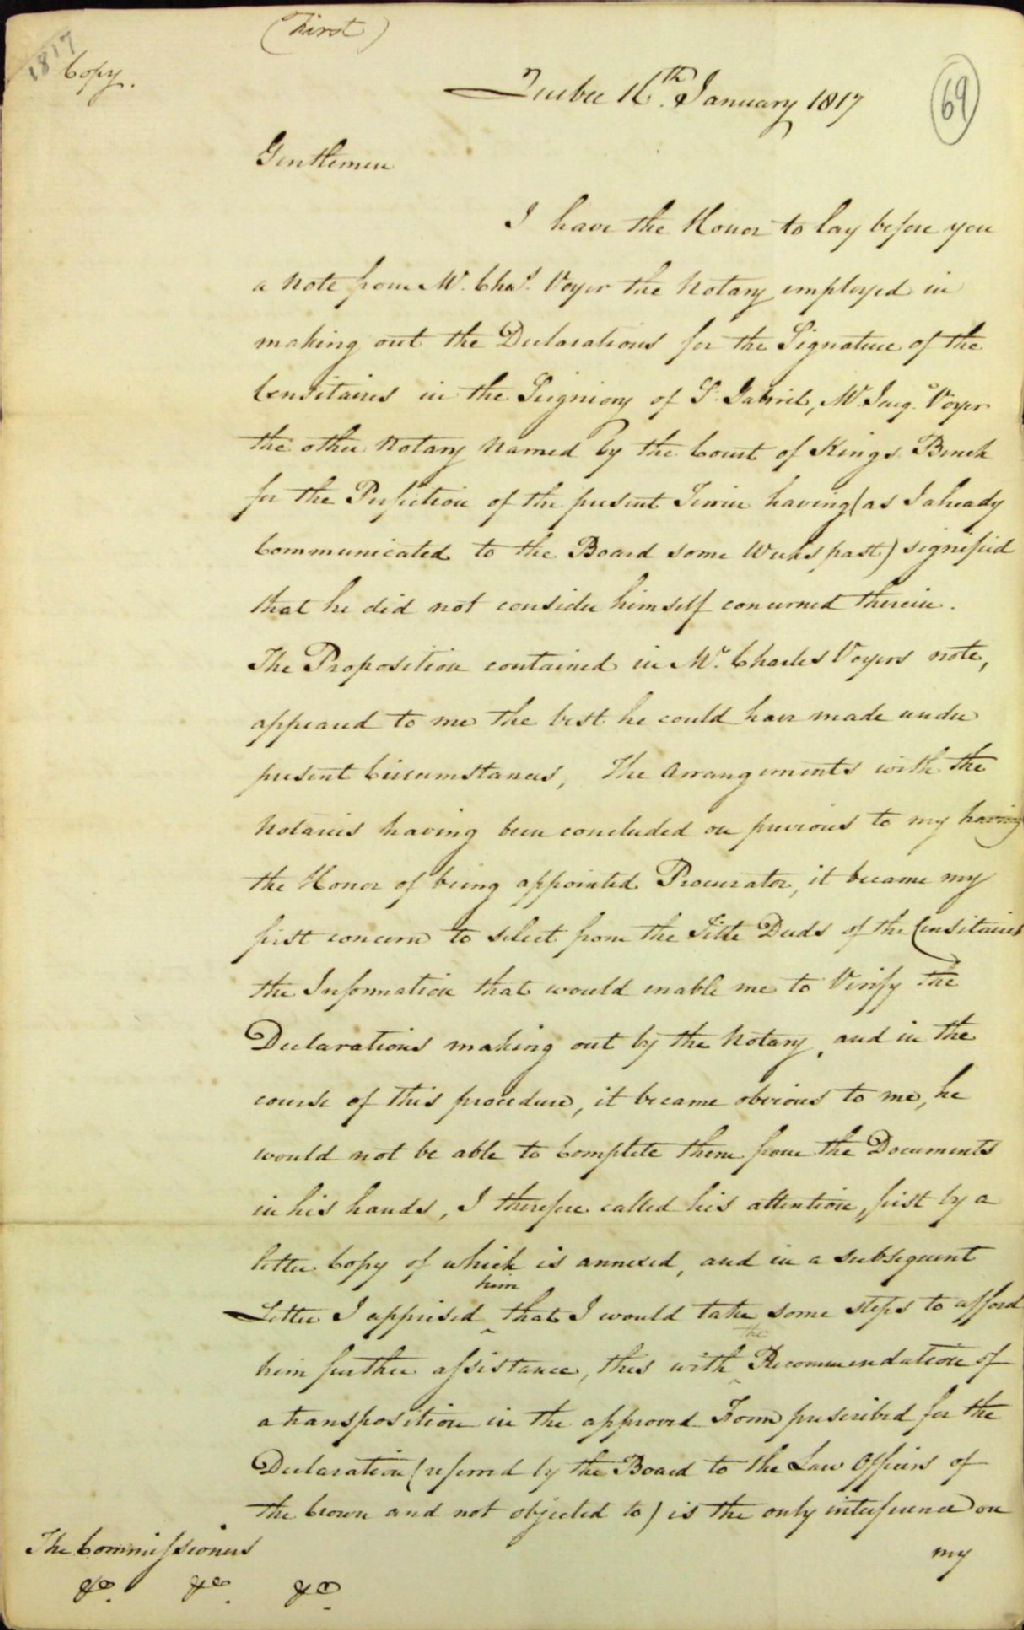 (First)
1817
Copy.
Quebec 16th. January 1817
69
Gentlemen
I have the Honor to lay before you
a Note from Mr. Chas. Voyer the Notary employed in
making out the Declarations for the Signature of the
Censitaires in the Seigniory of St. Gabriel, Mr. Voyer
the other Notary Named by the Court of Kings Bench
for the Perfection of the present Terrier having (as I already
Communicated to the Board some Weeks past) signified
that he did not consider himself concerned therein.
The Proposition contained in Mr. Charles Voyers note,
appeared to me the best he could have made under
present Circumstances, The Arrangements with the
Notaries having been concluded on previous to my having
the Honor of being appointed Procurator, it became my
first concern to select from the Title Deeds of the Censitaires
the Information that would enable me to Verify the
Declarations making out by the Notary, and in the
course of this procedure, it became obvious to me, he
would not be able to Complete them from the Documents
in his hands, I therefore called his attention, first by a
letter Copy of which is annexed, and in a subsequent
Letter I apprised him that I would take some steps to afford
him further assistance, this with the Recommendation of
a transposition in the approved Form prescribed for the
Declaration (referred by the Board to the Law Officers of
the Crown and not objected to) is the only interference on
my
The Commissioners
&c. &c. &c.